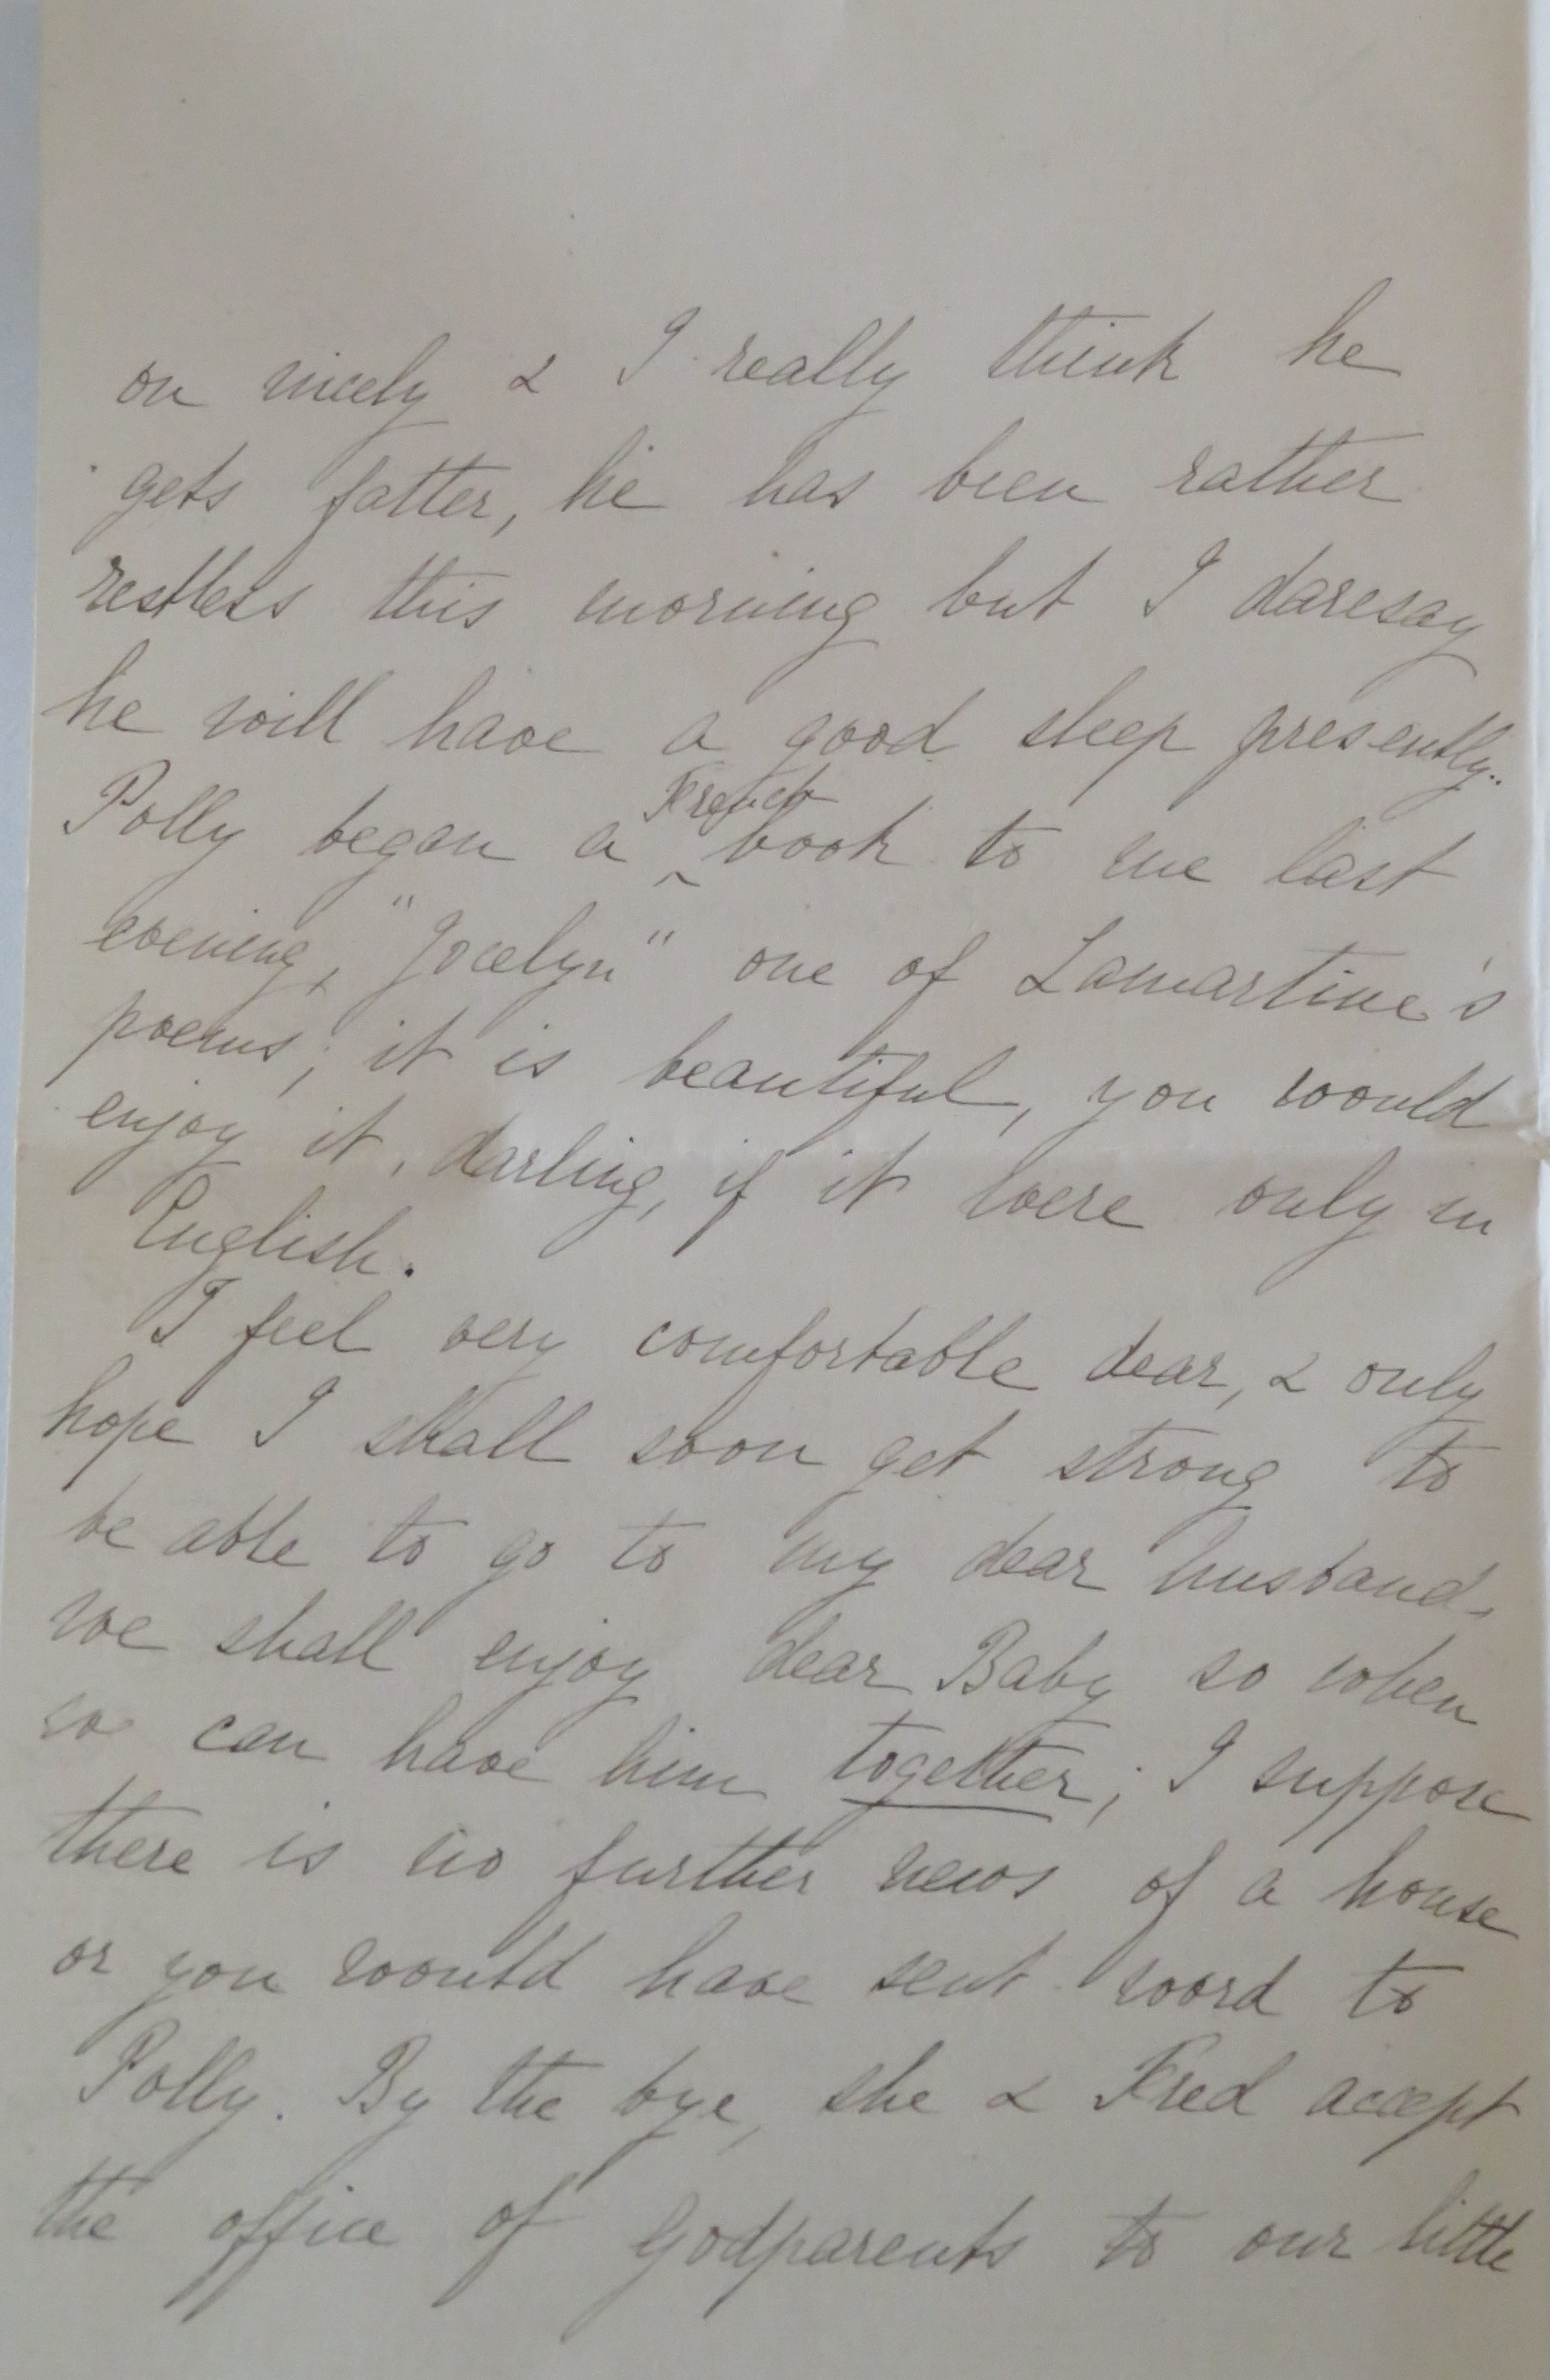 on nicely & I really think he
gets fatter, he has been rather
restless this morning but I daresay
he will have a good sleep presently.
Polly began a ^French book to me last
evening, "Jocelyn" one of Lamartine's
poems; it is beautiful, you would
enjoy it, darling, if it were only in
English.
I feel very comfortable dear, & only
hope I shall soon get strong to
be able to go to my dear husband,
we shall enjoy dear Baby so when
can have him together; I suppose
there is no further news of a house
or you would have sent word to
Polly. By the bye, she & Fred accept
the office of Godparents to our little